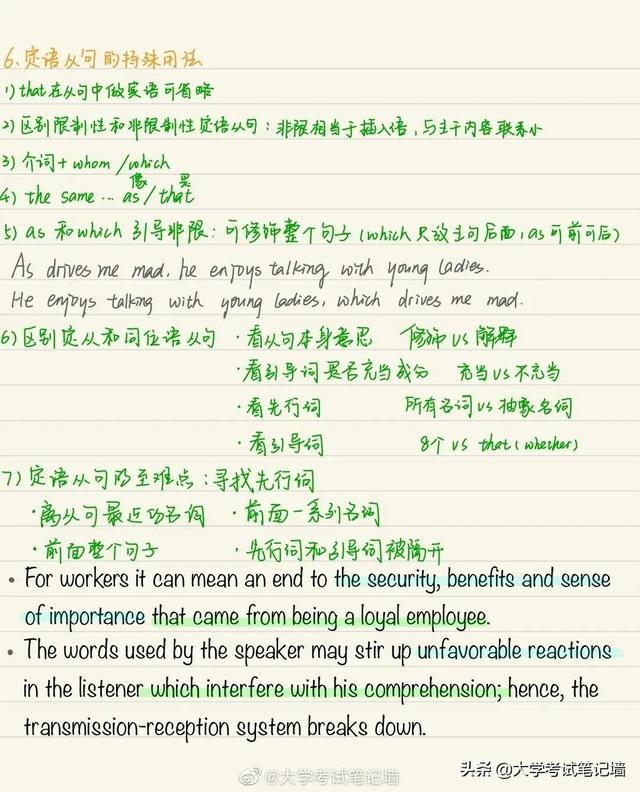 6、定语从句的特殊用法
1) that在从句中做宾语可省略
2) 区别限制性和非限制性定语从句：非限相当于插入语，与主干内容联系小
3) 介词 + whom / which
像 是
4) the same … as / that
5) as 和 which 引导非限：可修饰整个句子（which 只放主句后面，as 可前可后）
As drives me mad, he enjoys talking with young ladies.
He enjoys talking with young ladies, which drives me mad.
6) 区别定从和同位语从句 · 看从句本身意思 修饰 vs 解释
· 看引导词是否充当成分 充当 vs 不充当
· 看先行词 所有名词 vs 抽象名词
· 看引导词 8个 vs that (whether)
7) 定语从句的至难点：寻找先行词
· 离从句最近的名词 · 前面一系列名词
· 前面整个句子 · 先行词和引导词被隔开
• For workers it can mean an end to the security, benefits and sense
of importance that came from being a loyal employee.
• The words used by the speaker may stir up unfavorable reactions
in the listener which interfere with his comprehension; hence, the
transmission-reception system breaks down.
@大学考试笔记墙
头条 @大学考试笔记墙